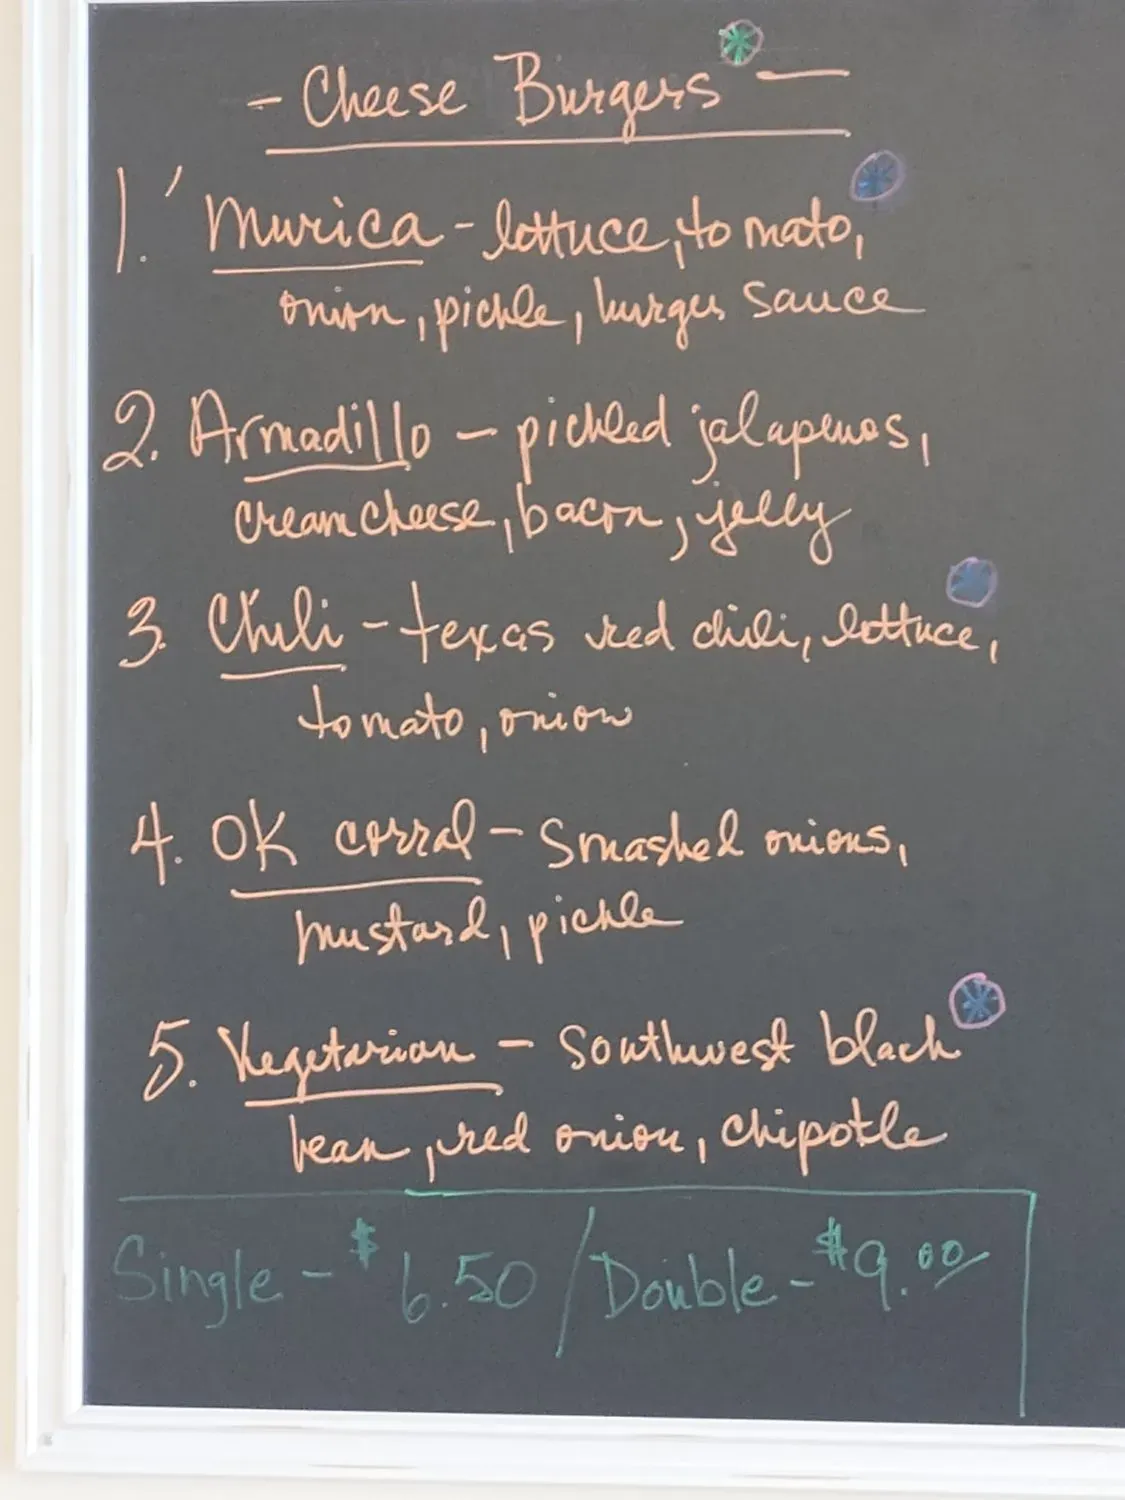 - Cheese Burgers* -
1. 'Murica - lettuce, tomato, *
onion, pickle, burger sauce
2. Armadillo - pickled jalapenos,
cream cheese, bacon, jelly
3. Chili - texas red chili, lettuce, *
tomato, onion
4. OK corral - Smashed onions,
mustard, pickle
5. Vegetarian - Southwest black *
bean, red onion, chipotle
Single - $6.50 / Double - $9.00